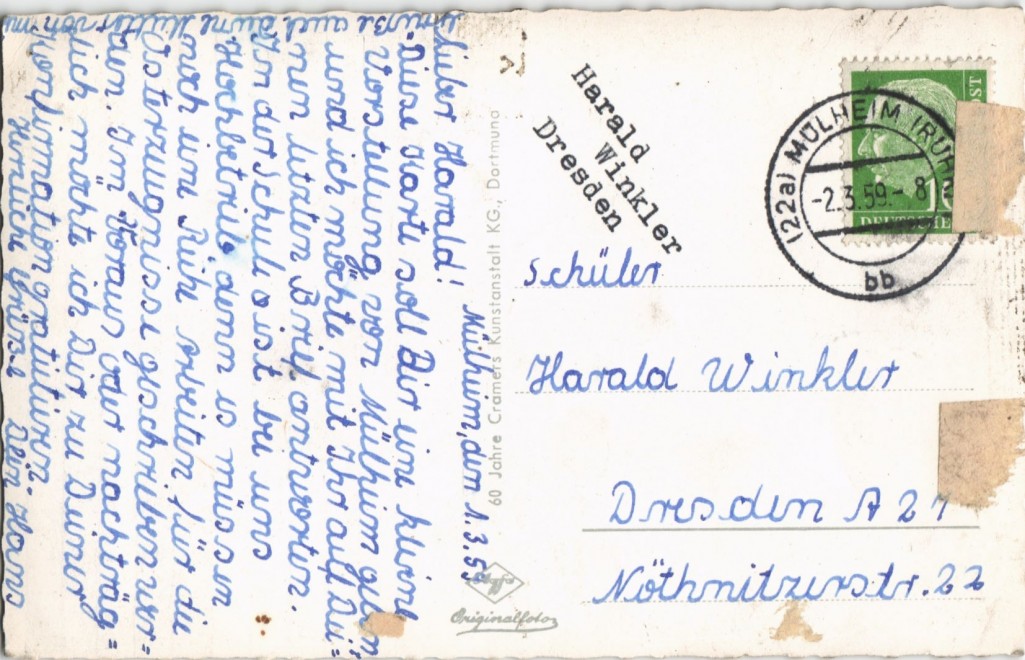 Mülheim, den 1.3.59
Lieber Harald!
Diese Karte soll Dir eine kleine
Vorstellung von Mülheim geben
und ich möchte mit Ihr auf Dei=
nen letzten Brief antworten.
In der Schule ist bei uns
Hochbetrieb, denn es müssen
noch eine Reihe Arbeiten für die
Osterzeugnisse geschrieben wer=
den. Im Voraus oder nachträg=
lich möchte ich Dir zu Deiner
Konfirmation gratulieren.
Herzliche Grüße Dein Hans
Grüße auch Deine Mutter von mir
60 Jahre Cramers Kunstanstalt KG., Dortmund
Agfa
Originalfoto
Harald
Winkler
Dresden
(22a) MÜLHEIM (RUHR
-2.3.59.- 8
bb
DEUTSCHE
POST
Schüler
Harald Winkler
Dresden A 27
Nöthnitzerstr. 22